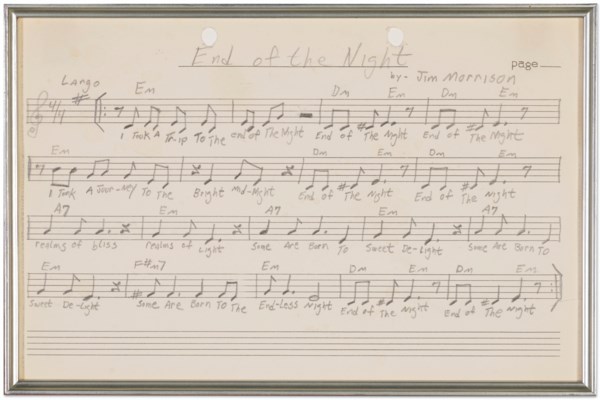 End of the Night
page
by - Jim Morrison
Largo
Em Dm Em Dm Em
4/4
I Took A Trip To The end of The Night End of The Night End of The Night
Em Dm Em Dm Em
I Took A Jour-ney To The Bright Mid-Night End of The Night End of The Night
A7 Em A7 Em A7
realms of bliss realms of Light Some Are Born To Sweet De-light Some Are Born To
Em F#m7 Em Dm Em Dm Em
Sweet De-light Some Are Born To The End-less Night End of The Night End of The Night